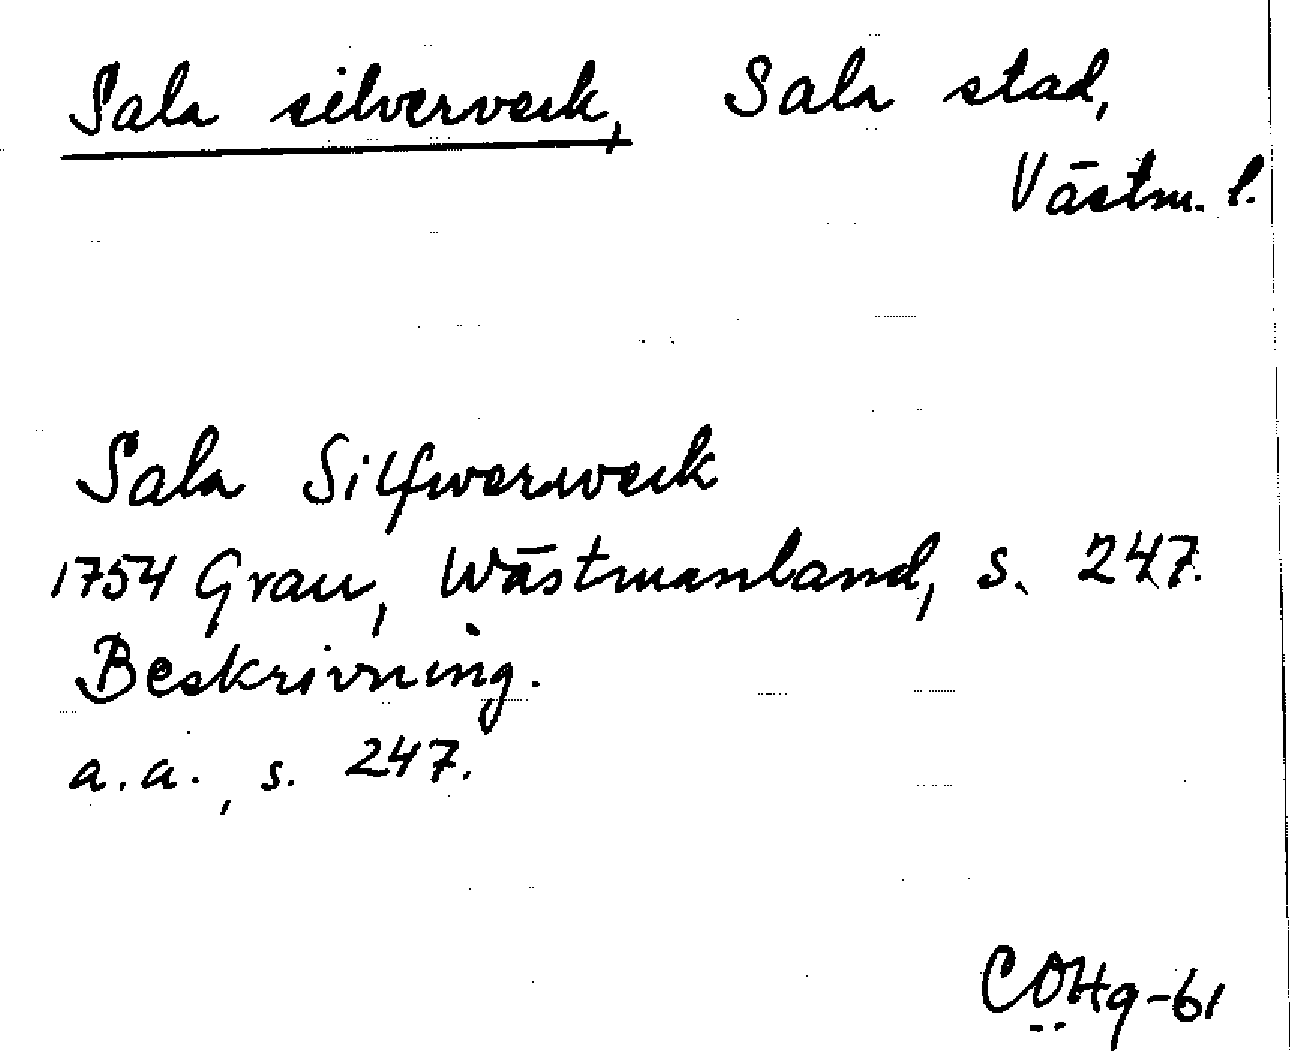 Sala silververk, Sala stad,
Västm. l.
Sala Silfwerwerk
1754 Grau, Wästmanland, s. 247.
Beskrivning.
a.a., s. 247.
COHg-61